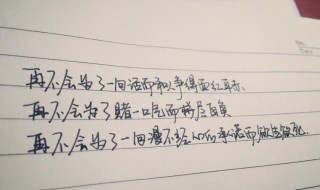 再不会为了一句话而和人争得面红耳赤.
再不会为了赌一口气而睚眦自负
再不会为了一句漫不经心的承诺而做包做死.